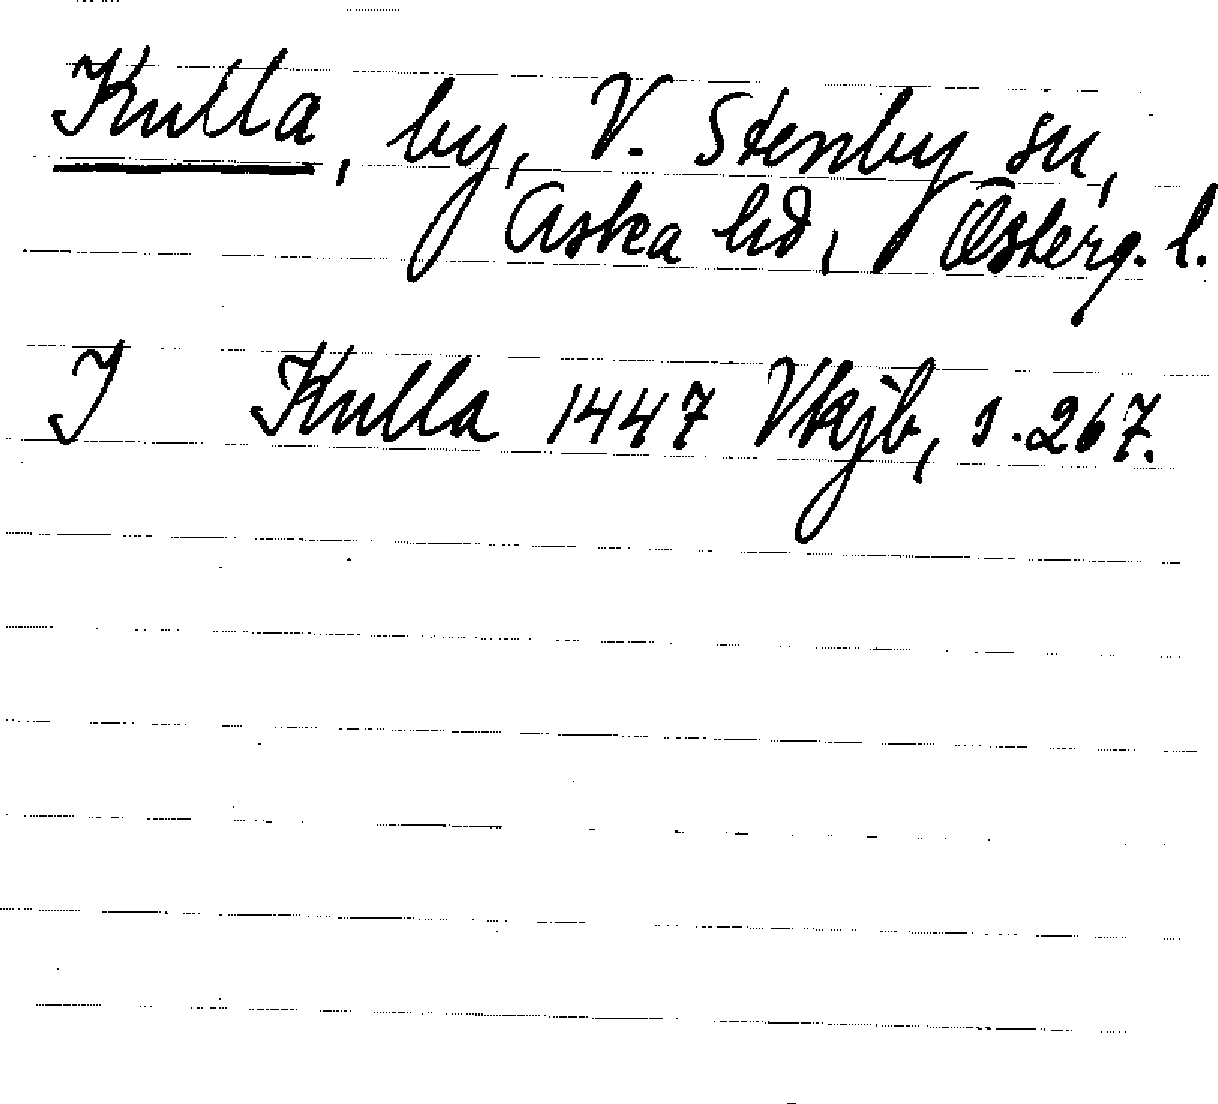 Kulla, by, V. Stenby sn,
Aska hd, Österg. l.
I Kulla 1447 Vkjb, s. 267.